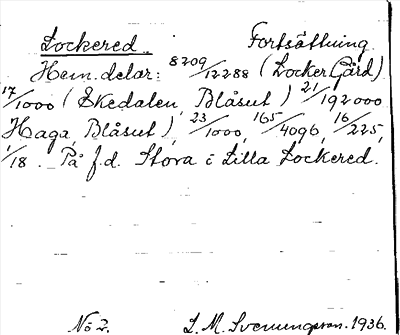 Lockered. Fortsättning.
Hem. delar: 8209/12288 (Locker Gård)
17/1000 (Skedalen, Blåsut) 21/192000
Haga, Blåsut), 23/1000, 165/4096, 16/225,
1/18. På f.d. Stora i Lilla Lockered.
No 2. L. M. Svenungsson. 1936.